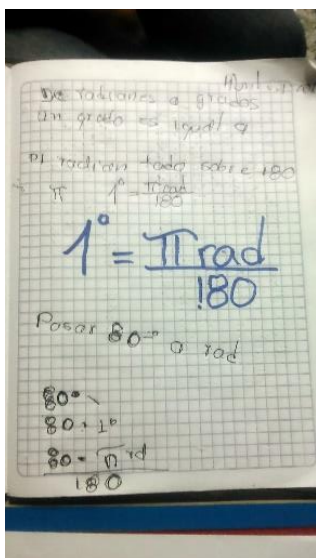 De radianes a grados
un grado es igual a
PI radian todo sobre 180
π 1° = πrad / 180
1° = πrad / 180
Pasar 80° a rad
80°
80 · 1°
80 · π rd / 180